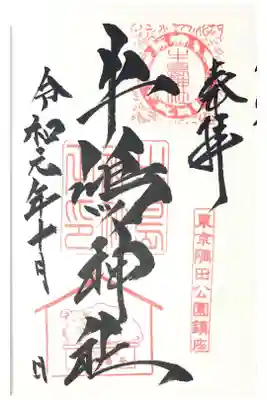 奉拝
東京隅田公園鎮座
牛嶋神社
令和元年十月 日